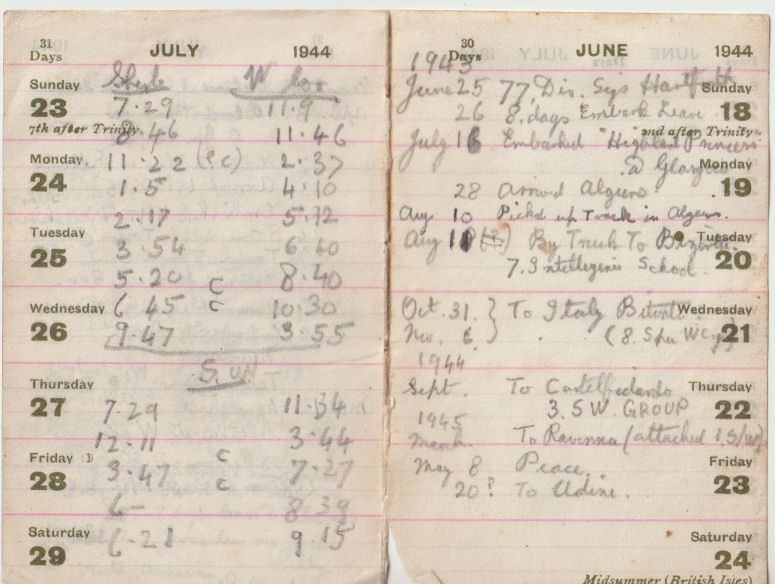 31
Days
JULY
1944
Sunday
23
7th after Trinity
Sherb W loo
7.29 11.9
8.46 11.46
Monday
24
11.22 (S C) 2.37
1.5 4.10
2.17 5.12
Tuesday
25
3.54 6.40
5.20 C 8.40
Wednesday
26
6 45 C 10.30
9.47 3.55
SUN
Thursday
27
7.29 11.34
12.11 3.44
Friday
28
3.47 C 7.27
6- C 8.39
Saturday
29
6-21 9 15
30
Days
JUNE
1944
1943
Sunday
18
2nd after Trinity
June 25 77 Div. Sigs
26 8. days Embark Leave
July 16 Embarked "Highland Princess"
Monday
19
28 Arrived Algiers
Aug 10 Picked up Truck in Algiers.
Tuesday
20
Aug 1 By Truck To
7. Intelligence School.
Wednesday
21
Oct. 31. } To Italy
Nov. 6 } (8. Spu
1944
Thursday
22
Sept. To Castelfidardo
3. S W. GROUP
1945
March To Ravenna (attached 1 S/W)
Friday
23
May 8 Peace.
20? To Udine.
Saturday
24
Midsummer (British Isles)